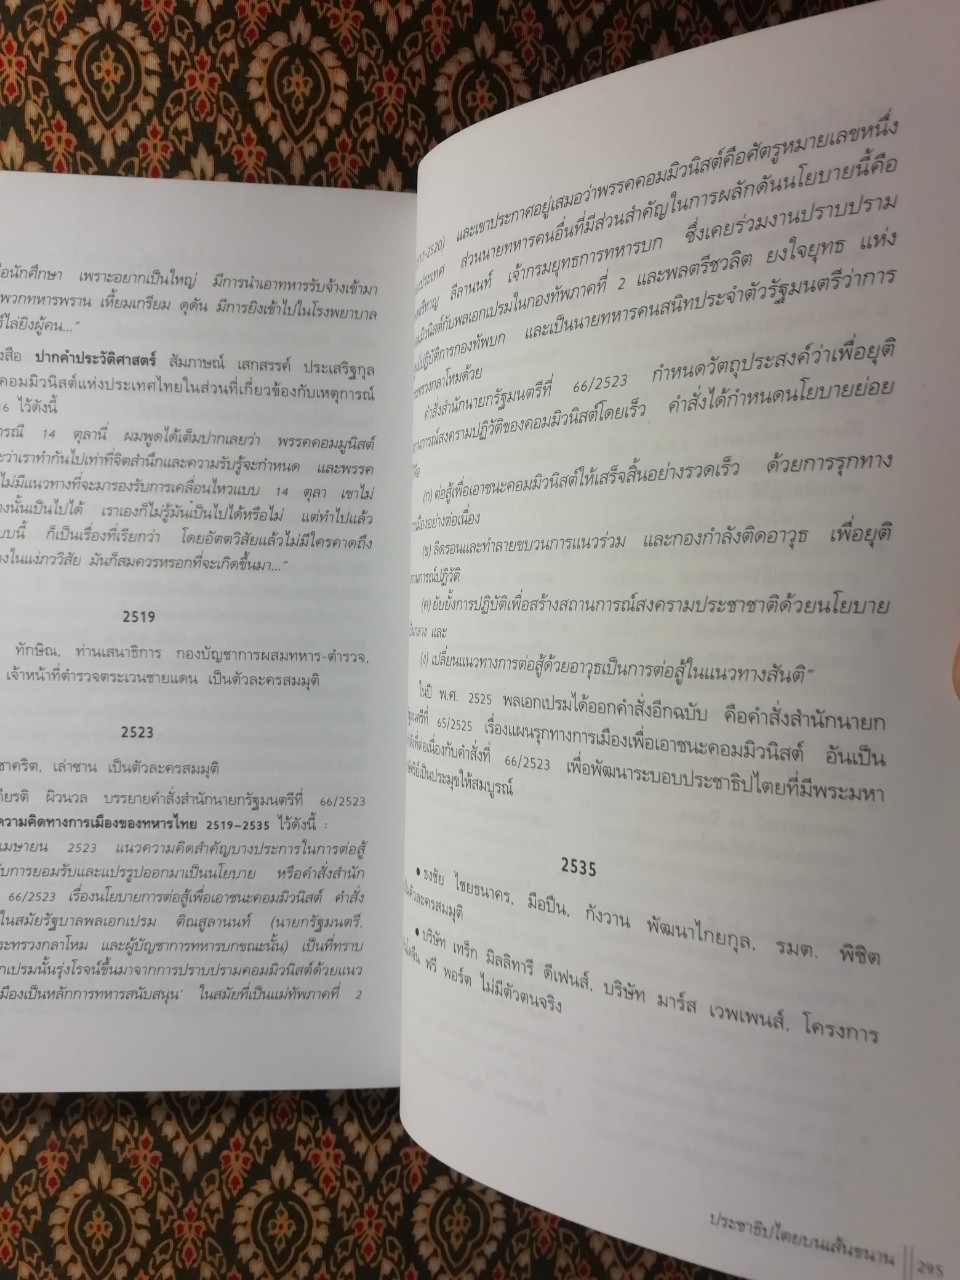 นักศึกษา เพราะอยากเป็นใหญ่ มีการนำเอาทหารรับจ้างเข้ามา
พวกทหารพราน เหี้ยมเกรียม ดุดัน มีการยิงเข้าไปในโรงพยาบาล
ไล่ยิงผู้คน..."
ปากคำประวัติศาสตร์ สัมภาษณ์ เสกสรรค์ ประเสริฐกุล
คอมมิวนิสต์แห่งประเทศไทยในส่วนที่เกี่ยวข้องกับเหตุการณ์
16 ไว้ดังนี้
14 ตุลานี่ ผมพูดได้เต็มปากเลยว่า พรรคคอมมูนิสต์
ว่าเราทำกันไปเท่าที่จิตสำนึกและความรับรู้จะกำหนด และพรรค
ไม่มีแนวทางที่จะมารองรับการเคลื่อนไหวแบบ 14 ตุลา เขาไม่
นั้นเป็นไปได้ เราเองก็ไม่รู้มันเป็นไปได้หรือไม่ แต่ทำไปแล้ว
บบนี้ ก็เป็นเรื่องที่เรียกว่า โดยอัตตวิสัยแล้วไม่มีใครคาดถึง
ในแง่ภววิสัย มันก็สมควรหรอกที่จะเกิดขึ้นมา..."
2519
ทักษิณ, ท่านเสนาธิการ กองบัญชาการผสมทหาร-ตำรวจ,
เจ้าหน้าที่ตำรวจตระเวนชายแดน เป็นตัวละครสมมุติ
2523
ชาคริต, เล่าซาน เป็นตัวละครสมมุติ
กียรติ ผิวนวล บรรยายคำสั่งสำนักนายกรัฐมนตรีที่ 66/2523
ความคิดทางการเมืองของทหารไทย 2519–2535 ไว้ดังนี้ :
เมษายน 2523 แนวความคิดสำคัญบางประการในการต่อสู้
รับการยอมรับและแปรรูปออกมาเป็นนโยบาย หรือคำสั่งสำนัก
66/2523 เรื่องนโยบายการต่อสู้เพื่อเอาชนะคอมมิวนิสต์ คำสั่ง
ในสมัยรัฐบาลพลเอกเปรม ติณสูลานนท์ (นายกรัฐมนตรี,
กระทรวงกลาโหม และผู้บัญชาการทหารบกขณะนั้น) เป็นที่ทราบ
กเปรมนั้นรุ่งโรจน์ขึ้นมาจากการปราบปรามคอมมิวนิสต์ด้วยแนว
เมืองเป็นหลักการทหารสนับสนุน' ในสมัยที่เป็นแม่ทัพภาคที่ 2
2520) และเขาประกาศอยู่เสมอว่าพรรคคอมมิวนิสต์คือศัตรูหมายเลขหนึ่ง
ประเทศ ส่วนนายทหารคนอื่นที่มีส่วนสำคัญในการผลักดันนโยบายนี้คือ
หาญ ลีลานนท์ เจ้ากรมยุทธการทหารบก ซึ่งเคยร่วมงานปราบปราม
มิวนิสต์กับพลเอกเปรมในกองทัพภาคที่ 2 และพลตรีชวลิต ยงใจยุทธ แห่ง
ปฏิบัติการกองทัพบก และเป็นนายทหารคนสนิทประจำตัวรัฐมนตรีว่าการ
ทรวงกลาโหมด้วย
คำสั่งสำนักนายกรัฐมนตรีที่ 66/2523 กำหนดวัตถุประสงค์ว่าเพื่อยุติ
านการณ์สงครามปฏิวัติของคอมมิวนิสต์โดยเร็ว คำสั่งได้กำหนดนโยบายย่อย
(ก) ต่อสู้เพื่อเอาชนะคอมมิวนิสต์ให้เสร็จสิ้นอย่างรวดเร็ว ด้วยการรุกทาง
เมืองอย่างต่อเนื่อง
(ข) ลิดรอนและทำลายขบวนการแนวร่วม และกองกำลังติดอาวุธ เพื่อยุติ
านการณ์ปฏิวัติ
(ค) ยับยั้งการปฏิบัติเพื่อสร้างสถานการณ์สงครามประชาชาติด้วยนโยบาย
เป็นกลาง และ
(ง) เปลี่ยนแนวทางการต่อสู้ด้วยอาวุธเป็นการต่อสู้ในแนวทางสันติ"
ในปี พ.ศ. 2525 พลเอกเปรมได้ออกคำสั่งอีกฉบับ คือคำสั่งสำนักนายก
รัฐมนตรีที่ 65/2525 เรื่องแผนรุกทางการเมืองเพื่อเอาชนะคอมมิวนิสต์ อันเป็น
ที่ต่อเนื่องกับคำสั่งที่ 66/2523 เพื่อพัฒนาระบอบประชาธิปไตยที่มีพระมหา
กษัตริย์เป็นประมุขให้สมบูรณ์
2535
• ธงชัย ไชยธนาคร, มือปืน, กังวาน พัฒนาไกยกุล, รมต. พิชิต
เป็นตัวละครสมมุติ
• บริษัท เทร็ก มิลลิทารี ดีเฟนส์, บริษัท มาร์ส เวพเพนส์, โครงการ
ฟรี พอร์ต ไม่มีตัวตนจริง
ประชาธิปไตยบนเส้นขนาน || 295